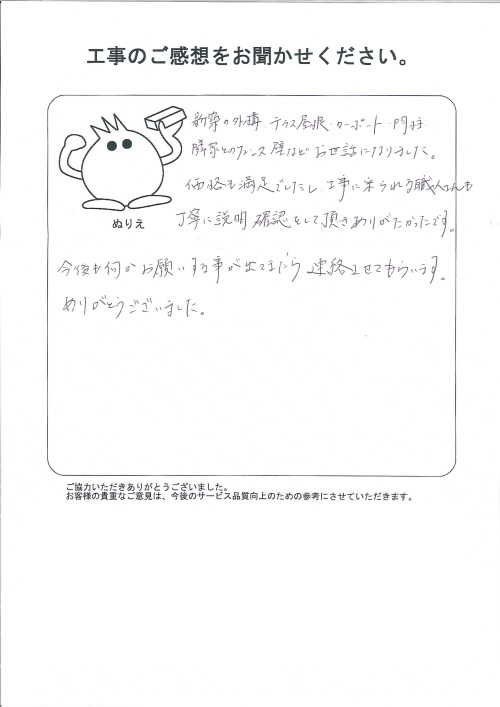 工事のご感想をお聞かせください。
新築の外構 テラス屋根・カーポート・門柱
隣家とのフェンス 壁など お世話になりました。
価格も満足でしたし 工事に来られる職人さんも
丁寧に説明 確認をして頂きありがたかったです。
ぬりえ
今後も何かお願いする事が出てきたら 連絡させてもらいます。
ありがとうございました。
ご協力いただきありがとうございました。
お客様の貴重なご意見は、今後のサービス品質向上のための参考にさせていただきます。